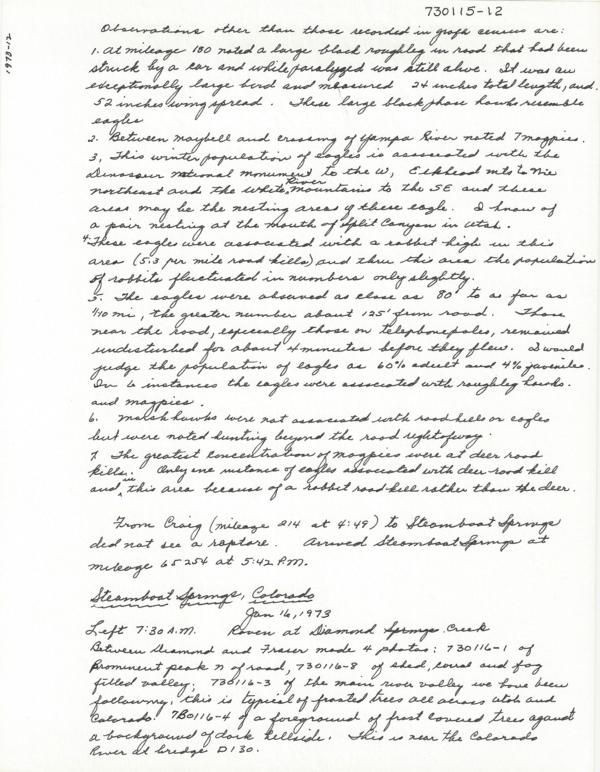 730115-12
1973-12
Observations other than those recorded in graph census are:
1. At mileage 180 noted a large black roughleg in road that had been
struck by a car and while paralyzed was still alive. It was an
exceptionally large bird and measured 24 inches total length, and
52 inches wing spread. These large black phase hawks resemble
eagles
2. Between Maybell and crossing of Yampa River noted 7 magpies.
3. This winter population of eagles is associated with the
Dinosaur national monument to the W, Elkhead mts to the
northeast and the White River Mountains to the SE and these
areas may be the nesting areas of these eagle. I know of
a pair nesting at the mouth of Split Canyon in Utah.
4. These eagles were associated with a rabbit high in this
area (5.3 per mile road kills) and thru this area the population
of rabbits fluctuated in numbers only slightly.
5. The eagles were observed as close as 80' to as far as
1/10 mi, the greater number about 125' from road. Those
near the road, especially those on telephone poles, remained
undisturbed for about 4 minutes before they flew. I would
judge the population of eagles as 60% adult and 4% juvenile.
In 6 instances the eagles were associated with roughleg hawks
and magpies.
6. Marsh hawks were not associated with road kills or eagles
but were noted hunting beyond the road right of way.
7. The greatest concentration of magpies were at deer road
kills. Only one instance of eagles associated with deer road kill
and in this area because of a rabbit road kill rather than the deer.
From Craig (mileage 214 at 4:49) to Steamboat Springs
did not see a raptore. Arrived Steamboat Springs at
mileage 65254 at 5:42 P.M.
Steamboat Springs, Colorado
Jan 16, 1973
Left 7:30 A.M. Raven at Diamond Springs Creek
Between Diamond and Fraser made 4 photos: 730116-1 of
prominent peak N of road, 730116-8 of shed, corral and fog
filled valley; 730116-3 of the main river valley we have been
following, this is typical of frosted trees all across Utah and
Colorado. 7B0116-4 of a foreground of frost covered trees against
a background of dark hillside. This is near the Colorado
River at bridge D130.